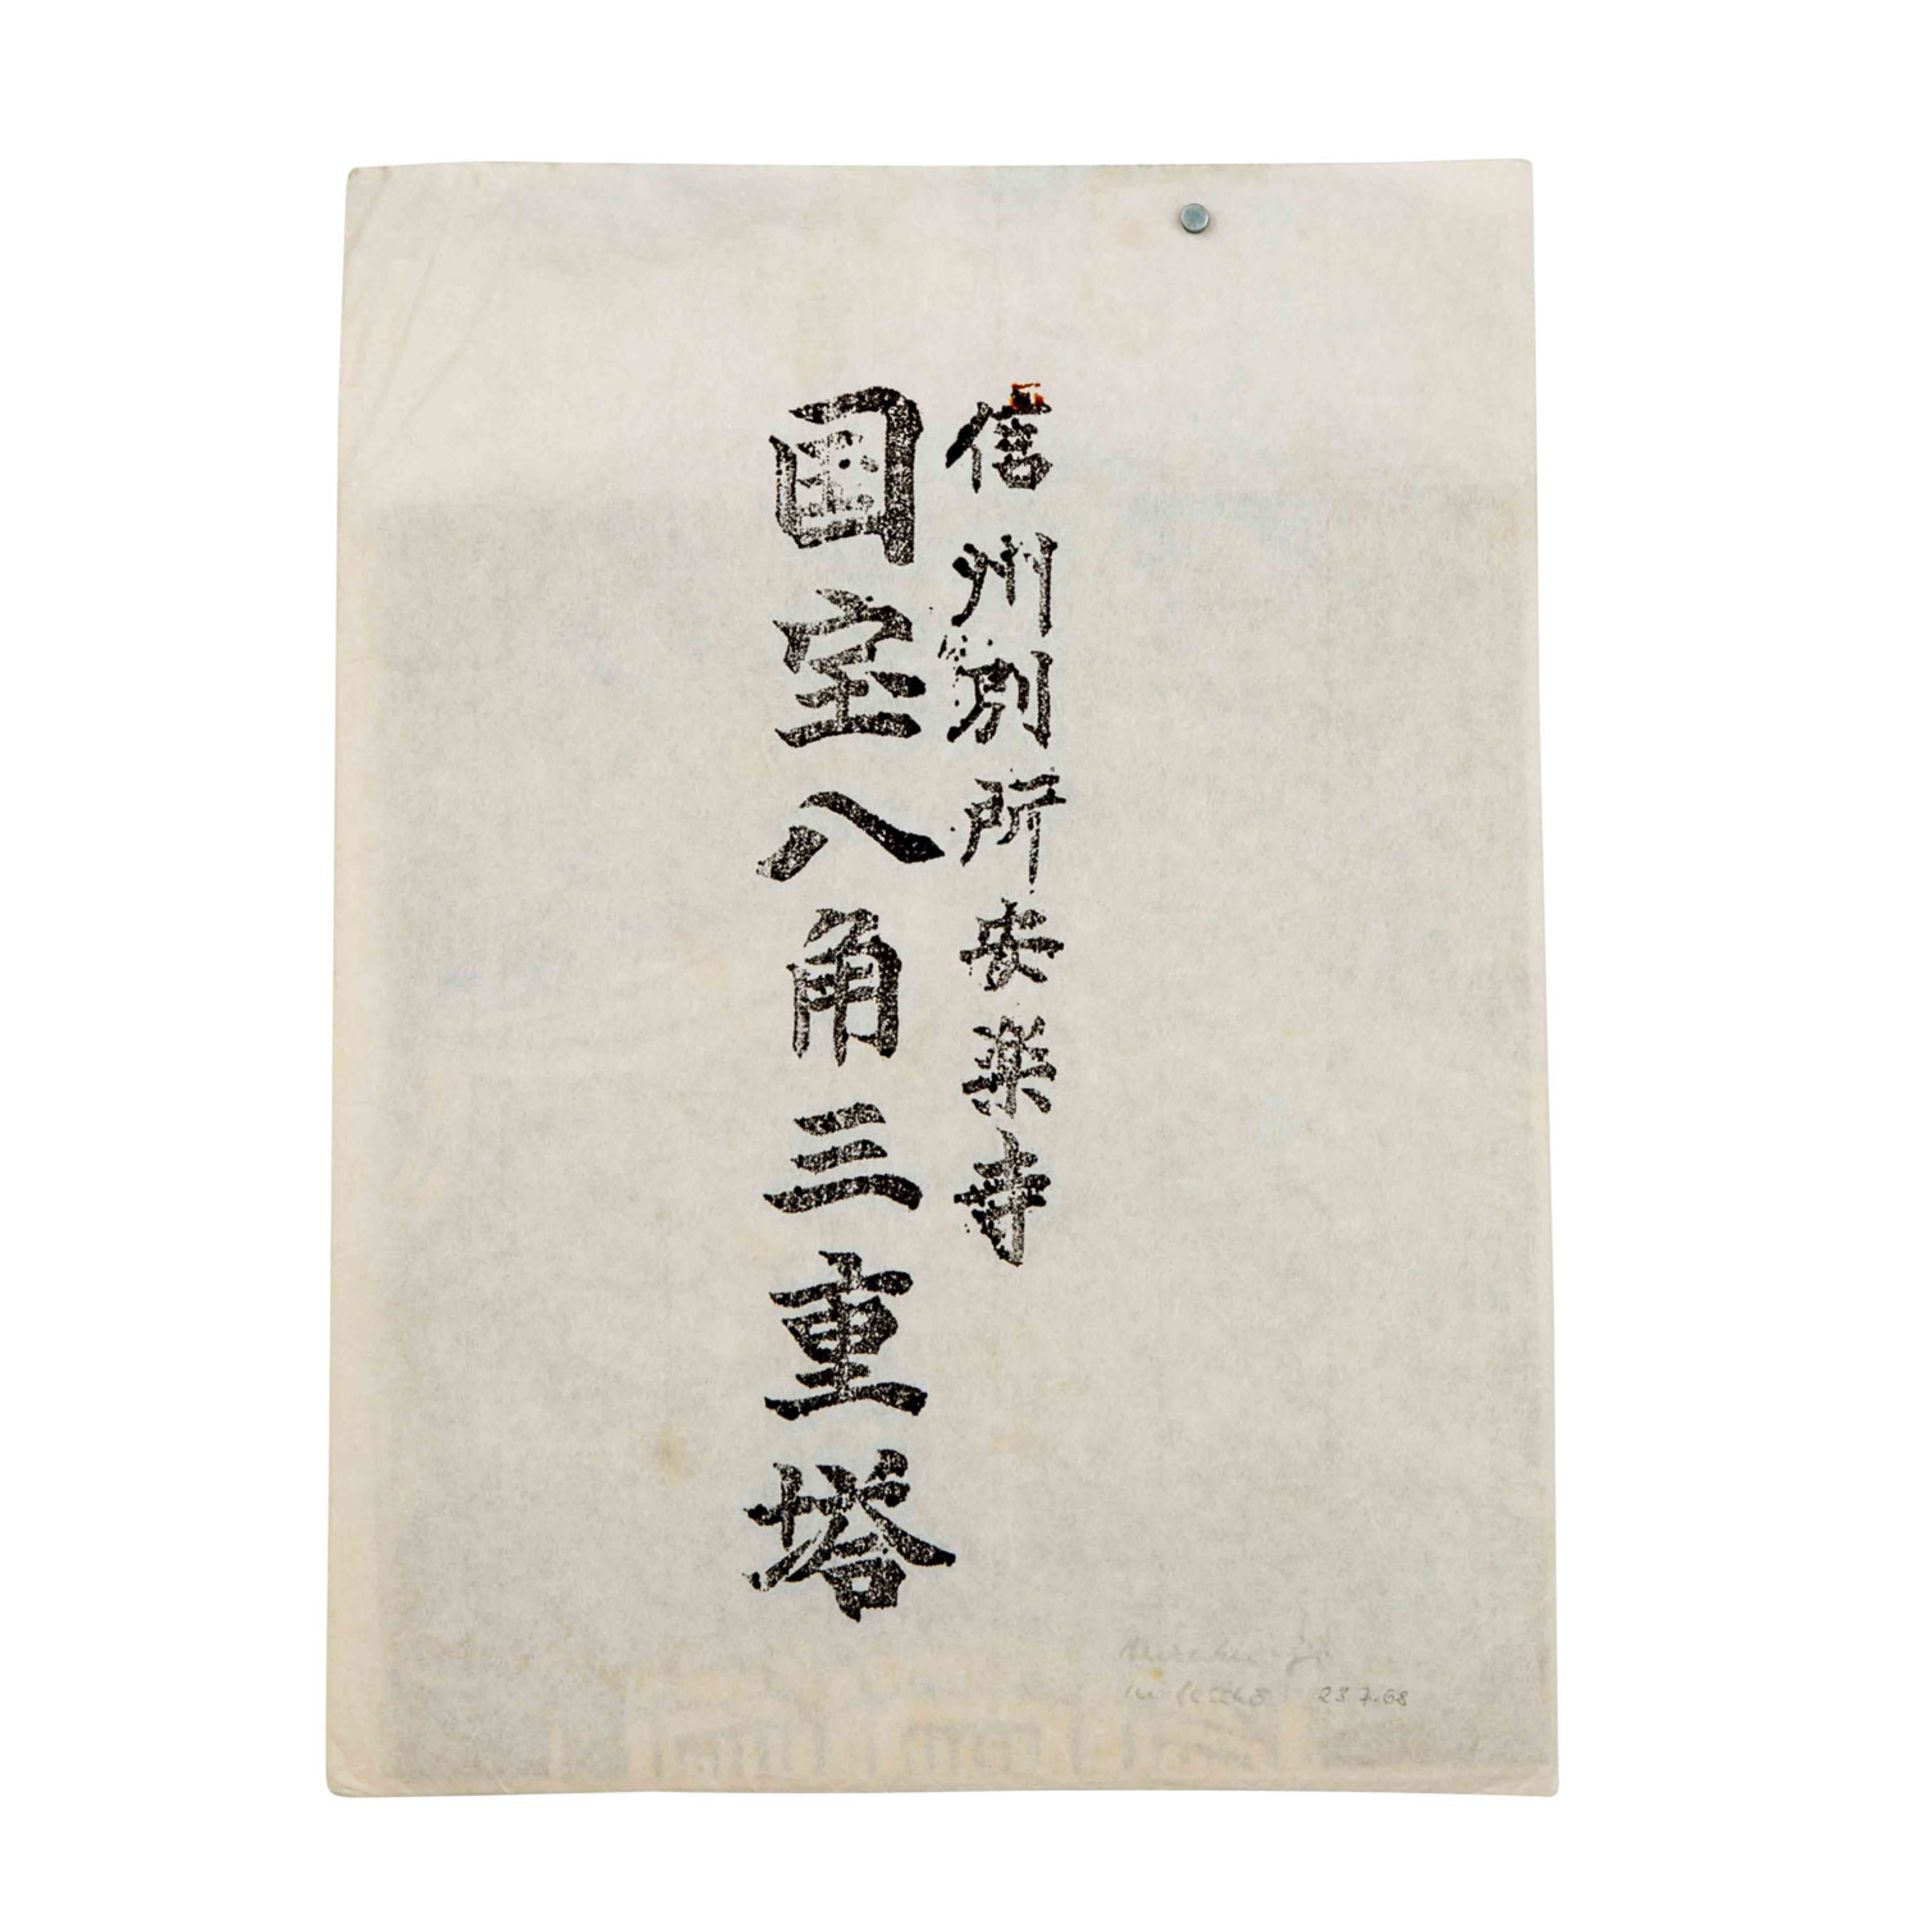 信州別所安楽寺
国宝八角三重塔
23.7.68